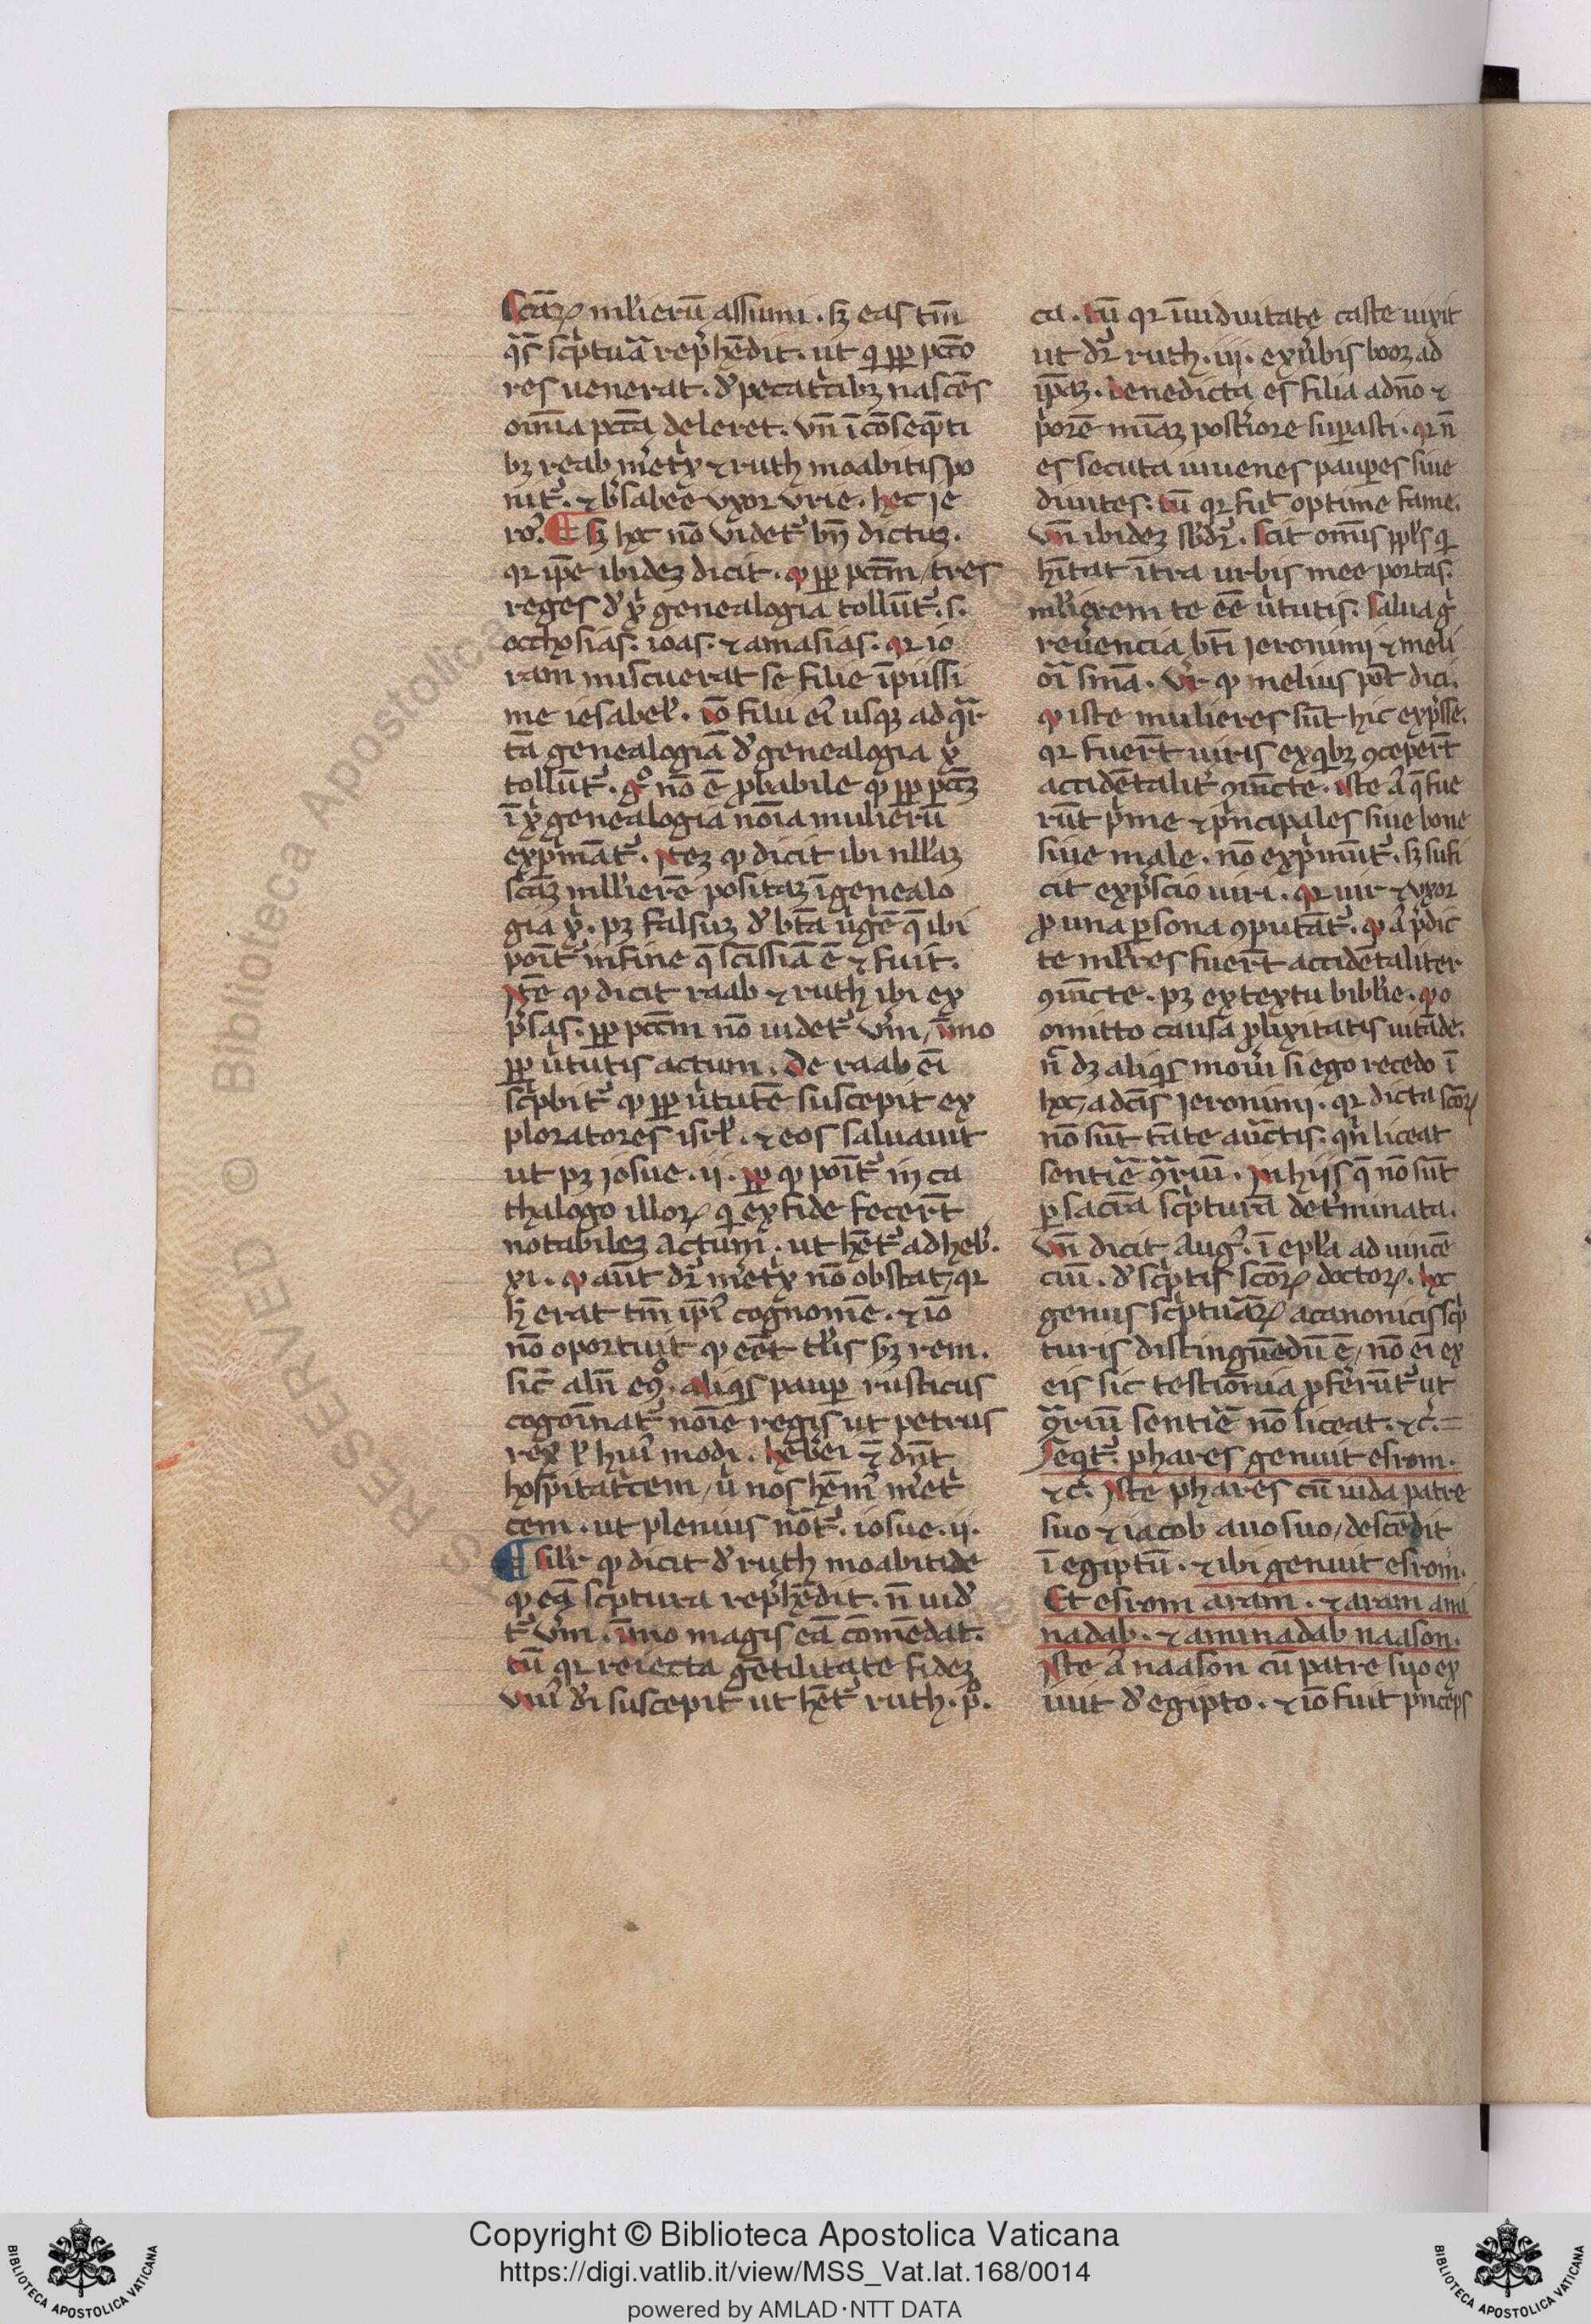 scãꝝ mulierũ assumi. sꝫ eas tm̃
qͣs sc̓ptua̓ rep̃hẽdit. ut qͥ ꝓꝑ pcc̃o
res uenerat. de peccatͥcibꝫ nascẽs
omĩa pcc̃a deleret. vñ ĩ cõseqñti
bꝫ reab me̓tͥx ⁊ ruth moabitis po
nit᷑. ⁊ be̓sabee vxor vrie. hec ie
ro᷑. ¶ sꝫ hoc nõ videt᷑ bñ dictuꝫ.
qꝛ ip̃e ibideꝫ dicit. ꝙ ꝓꝑ pcc̃m / tres
reges de xͥ genealogia tollũt᷑. s.
occhosias. ioas. ⁊ amasias. qꝛ io
ram miscuerat se filie ĩpiissi
me iesabel̓. iõ filii ei᷑ usqꝫ ad qͣr
tã genealogiã de genealogia xͥ
tollũt᷑. gͦ nõ ẽ ꝓbabile ꝙ ꝓꝑ pcc̃ꝫ
ĩ xͥ genealogia noĩa mulierũ
expͥmãt᷑. Iteꝫ ꝙ dicit ibi null̃aꝫ
scãꝫ mulierẽ positaꝫ ĩ genealo
gia xͥ. pꝫ falsuꝫ de btã uͥgĩe q̃ ibi
poĩt᷑ in fine q̃ scĩssĩa ẽ ⁊ fuit.
Itẽ ꝙ dicit raab ⁊ ruth ibi ex
p̃sas. ꝓꝑ pcc̃m nõ uidet᷑ ve̓m / ĩmo
ꝓꝑ ue̓tutis actum. De raab eĩ
sc̓bit᷑ ꝙ ꝓꝑ ue̓tutẽ suscepit ex
ploratores isrl̓. ⁊ eos saluauit
ut pꝫ iosue. ii. ꝓꝑ ꝙ poĩt᷑ in ca
thalogo illoꝝ qͥ ex fide fecer̃t
notabileꝫ actum. ut hẽt᷑ ad heb̓.
xi. ꝙ aũt dr̃ me̓tͥx nõ obstat / qꝛ
h̓ erat tm̃ ip̃i᷑ cognomẽ. ⁊ iõ
nõ oportuit ꝙ eẽt tal̓is sꝫ rem.
sic̃ al̃n eqͦ. aliqͥs pauꝑ rusticus
cognoĩnat᷑ noĩe regis ut petrus
rex ł hui᷑ modi. hebrei eĩ dñt
hospitatͥcem / u̓ nos hẽm᷑ me̓tͥ
cem. ut plenius nõt᷑. iosue. ii.
¶ silr̃ ꝙ dicit de ruth moabitide
ꝙ eã sc̓ptura rep̃hẽdit. ñ uide
t᷑ ve̓m. ĩmo magis eã cõmẽdat.
tũ qꝛ reiecta gẽtilitate fideꝫ
vni᷑ dei suscepit ut hẽt᷑ ruth. pͦ.
ca. tũ qꝛ ĩ uiduitate caste uixit
ut dr̃ ruth. iii. ex ue̓bis booꝫ ad
ip̃aꝫ. benedicta es filia a dño ⁊
pͥorẽ mĩaꝫ post̓iore suꝑasti. qꝛ ñ
es secuta iuuenes pauꝑes siue
diuites. tũ qꝛ fuĩt optime fame.
vñ ibideꝫ sbdr̃. scit omĩs ppl̓s qͥ
hĩtat ĩtra urbis mee portas.
mulierem te eẽ ue̓tutis. salua gͦ
reue̓encia bt̃i ieronimi ⁊ meli
oͥ sñia. vr̃ ꝙ melius pot̃ dici.
ꝙ iste mulieres sũt hic exp̃sse.
qꝛ fuer̃t uiris ex qͥbꝫ ꝯceper̃t
accidẽtalit᷑ ꝯiũcte. iste aͥ q̃ fue
rũt pͥme ⁊ pͥncipales siue bone
siue male. nõ expͥmũt᷑. sꝫ sufi
cit exp̃ssio uiri. qꝛ uir ⁊ vxor
ꝓ una ꝑsona ꝯputãt᷑. ꝙ aͥ p̃dic
te muli̓res fuer̃t accidẽtaliter
ꝯiũcte. pꝫ ex textu biblie. qͦ
omitto causa ꝓlixitatis uitãde.
ñ dꝫ aliqͥs moueri si ego recedo ĩ
hoc / a dc̃is ieronimi. qꝛ dicta sc̃oꝝ
nõ sũt tãte auctͥtis. qͥn liceat
sentie ꝯͣriũ. In hijs q̃ nõ sũt
ꝑ sacrã sc̓pturã det̓minata.
vñ dicit Aug᷑. ĩ epl̓a ad uincẽ
ciũ. de sc̓ptis sc̃oꝝ doctoꝝ. hoc
genus sc̓ptuaꝝ a canonicis sc̓p
turis distinguẽdũ ẽ / nõ eĩ ex
eis sic testiõnia ꝓferũt᷑ ut
ꝯͣriũ sentiẽ nõ liceat. ⁊c̃. =
Seqt᷑. phares genuit esrom.
⁊c̃. Iste phares cũ iuda patre
suo ⁊ iacob auo suo / descẽdit
ĩ egiptũ. ⁊ ibi genuit esrom.
Et esrom aram. ⁊ aram ami
nadab. ⁊ aminadab naason.
Iste aͥ naason cũ patre suo ex
iuit de egipto. ⁊ iõ fuit pͥnceps
Copyright © Biblioteca Apostolica Vaticana
https://digi.vatlib.it/view/MSS_Vat.lat.168/0014
powered by AMLAD·NTT DATA